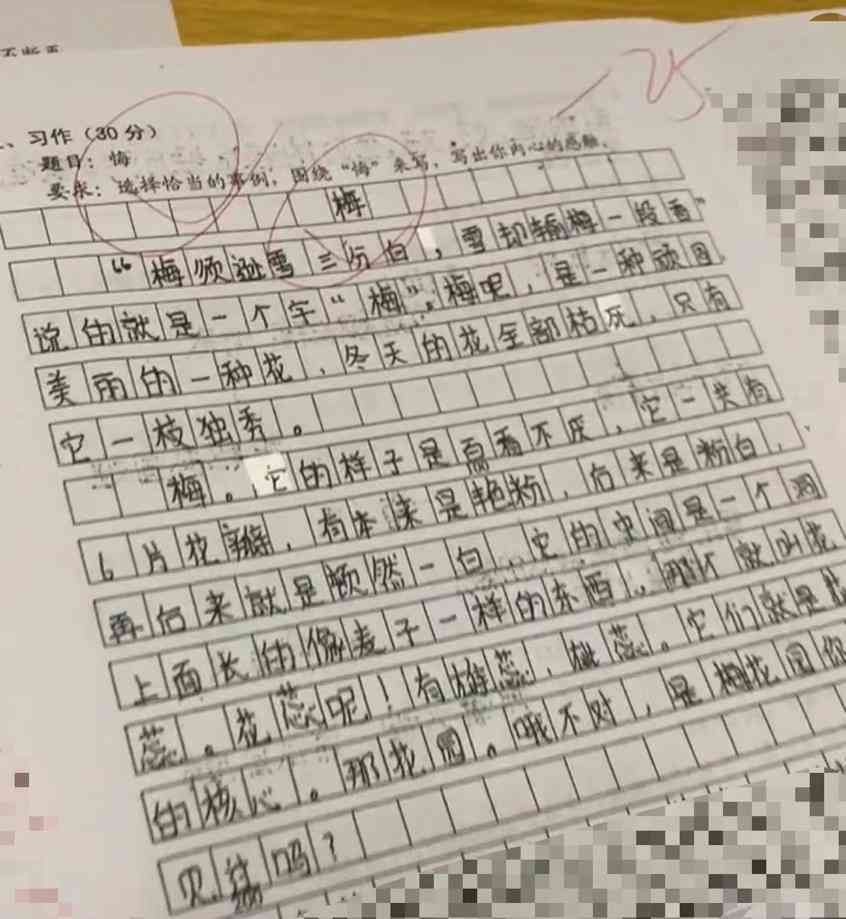 不断重
、习作(30分)
题目:悔
要求:选择恰当的事例,围绕“悔”来写,写出你内心的感触。
梅
“梅须逊雪三份白,雪却输梅一段香”
说的就是一个字“梅”。梅呢,是一种顽固
美丽的一种花,冬天的花全部枯死,只有
它一枝独秀。
梅。它的样子是百看不厌,它一共有
6片花瓣,有本来是艳粉,后来是粉白,
再后来就是颇然一白,它的中间是一个洞
上面长的像麦子一样的东西,那个就叫花
蕊。花蕊呢!有雄蕊,雌蕊。它们就是花
的核心。那花园。哦不对,是梅花园你
见过吗?